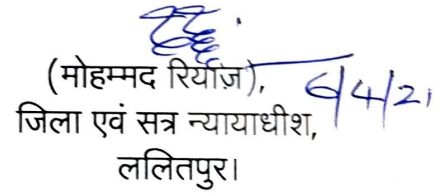 (मोहम्मद रियाज़), 6/4/21
जिला एवं सत्र न्यायाधीश,
ललितपुर।